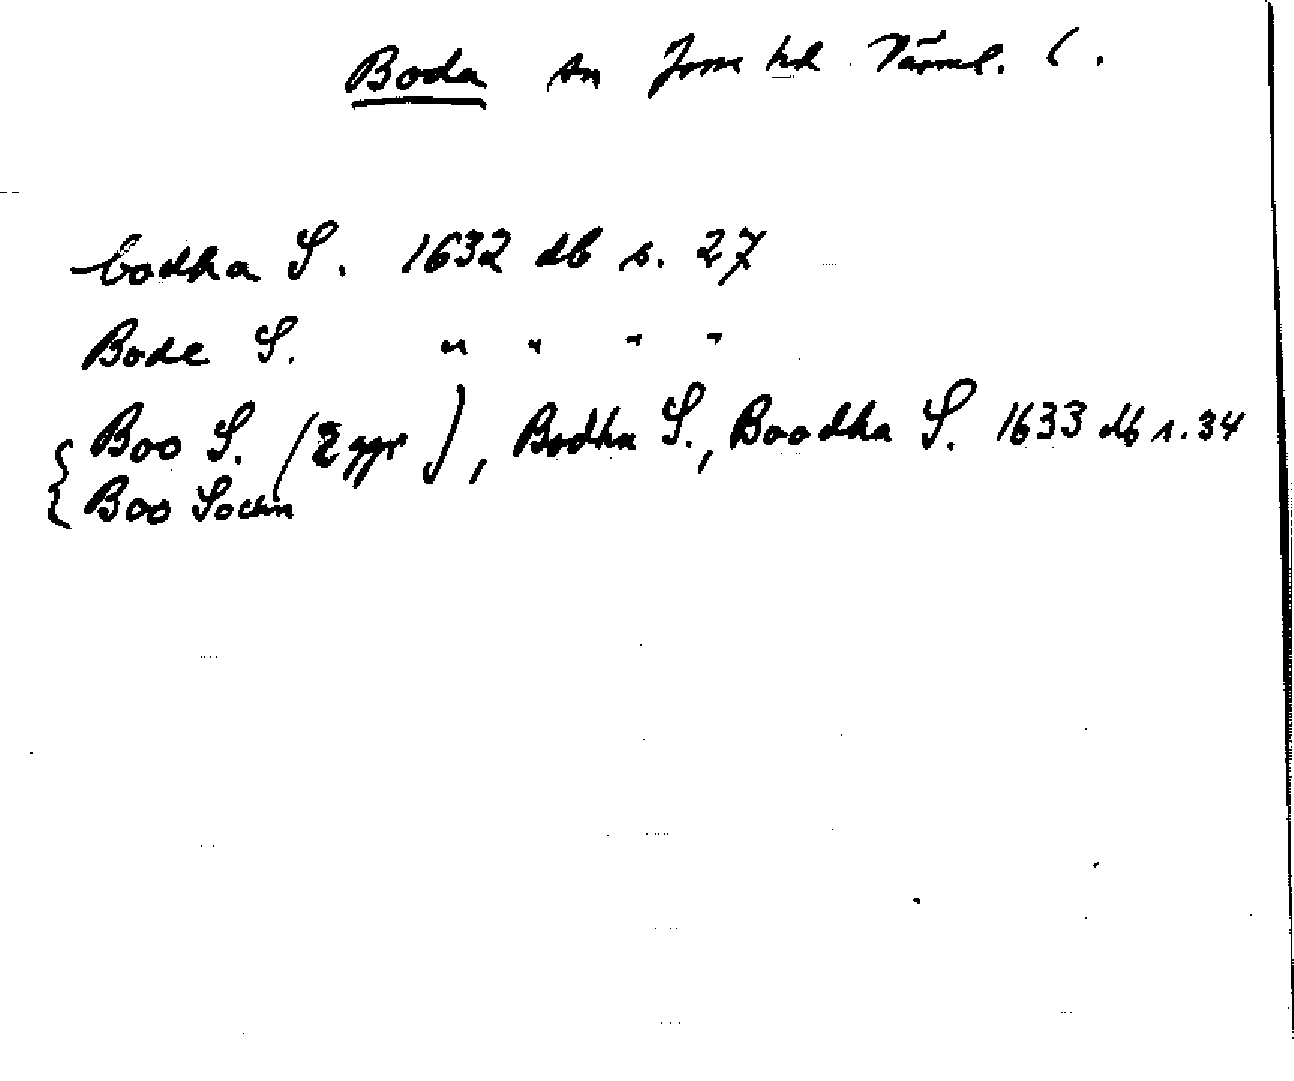 Boda sn Jösse hd Värml. l.
bodha S. 1632 db s. 27
Bode S. " " " "
Boo S. (2 ggr), Bodha S., Boodha S. 1633 db s. 34
Boo Sochn